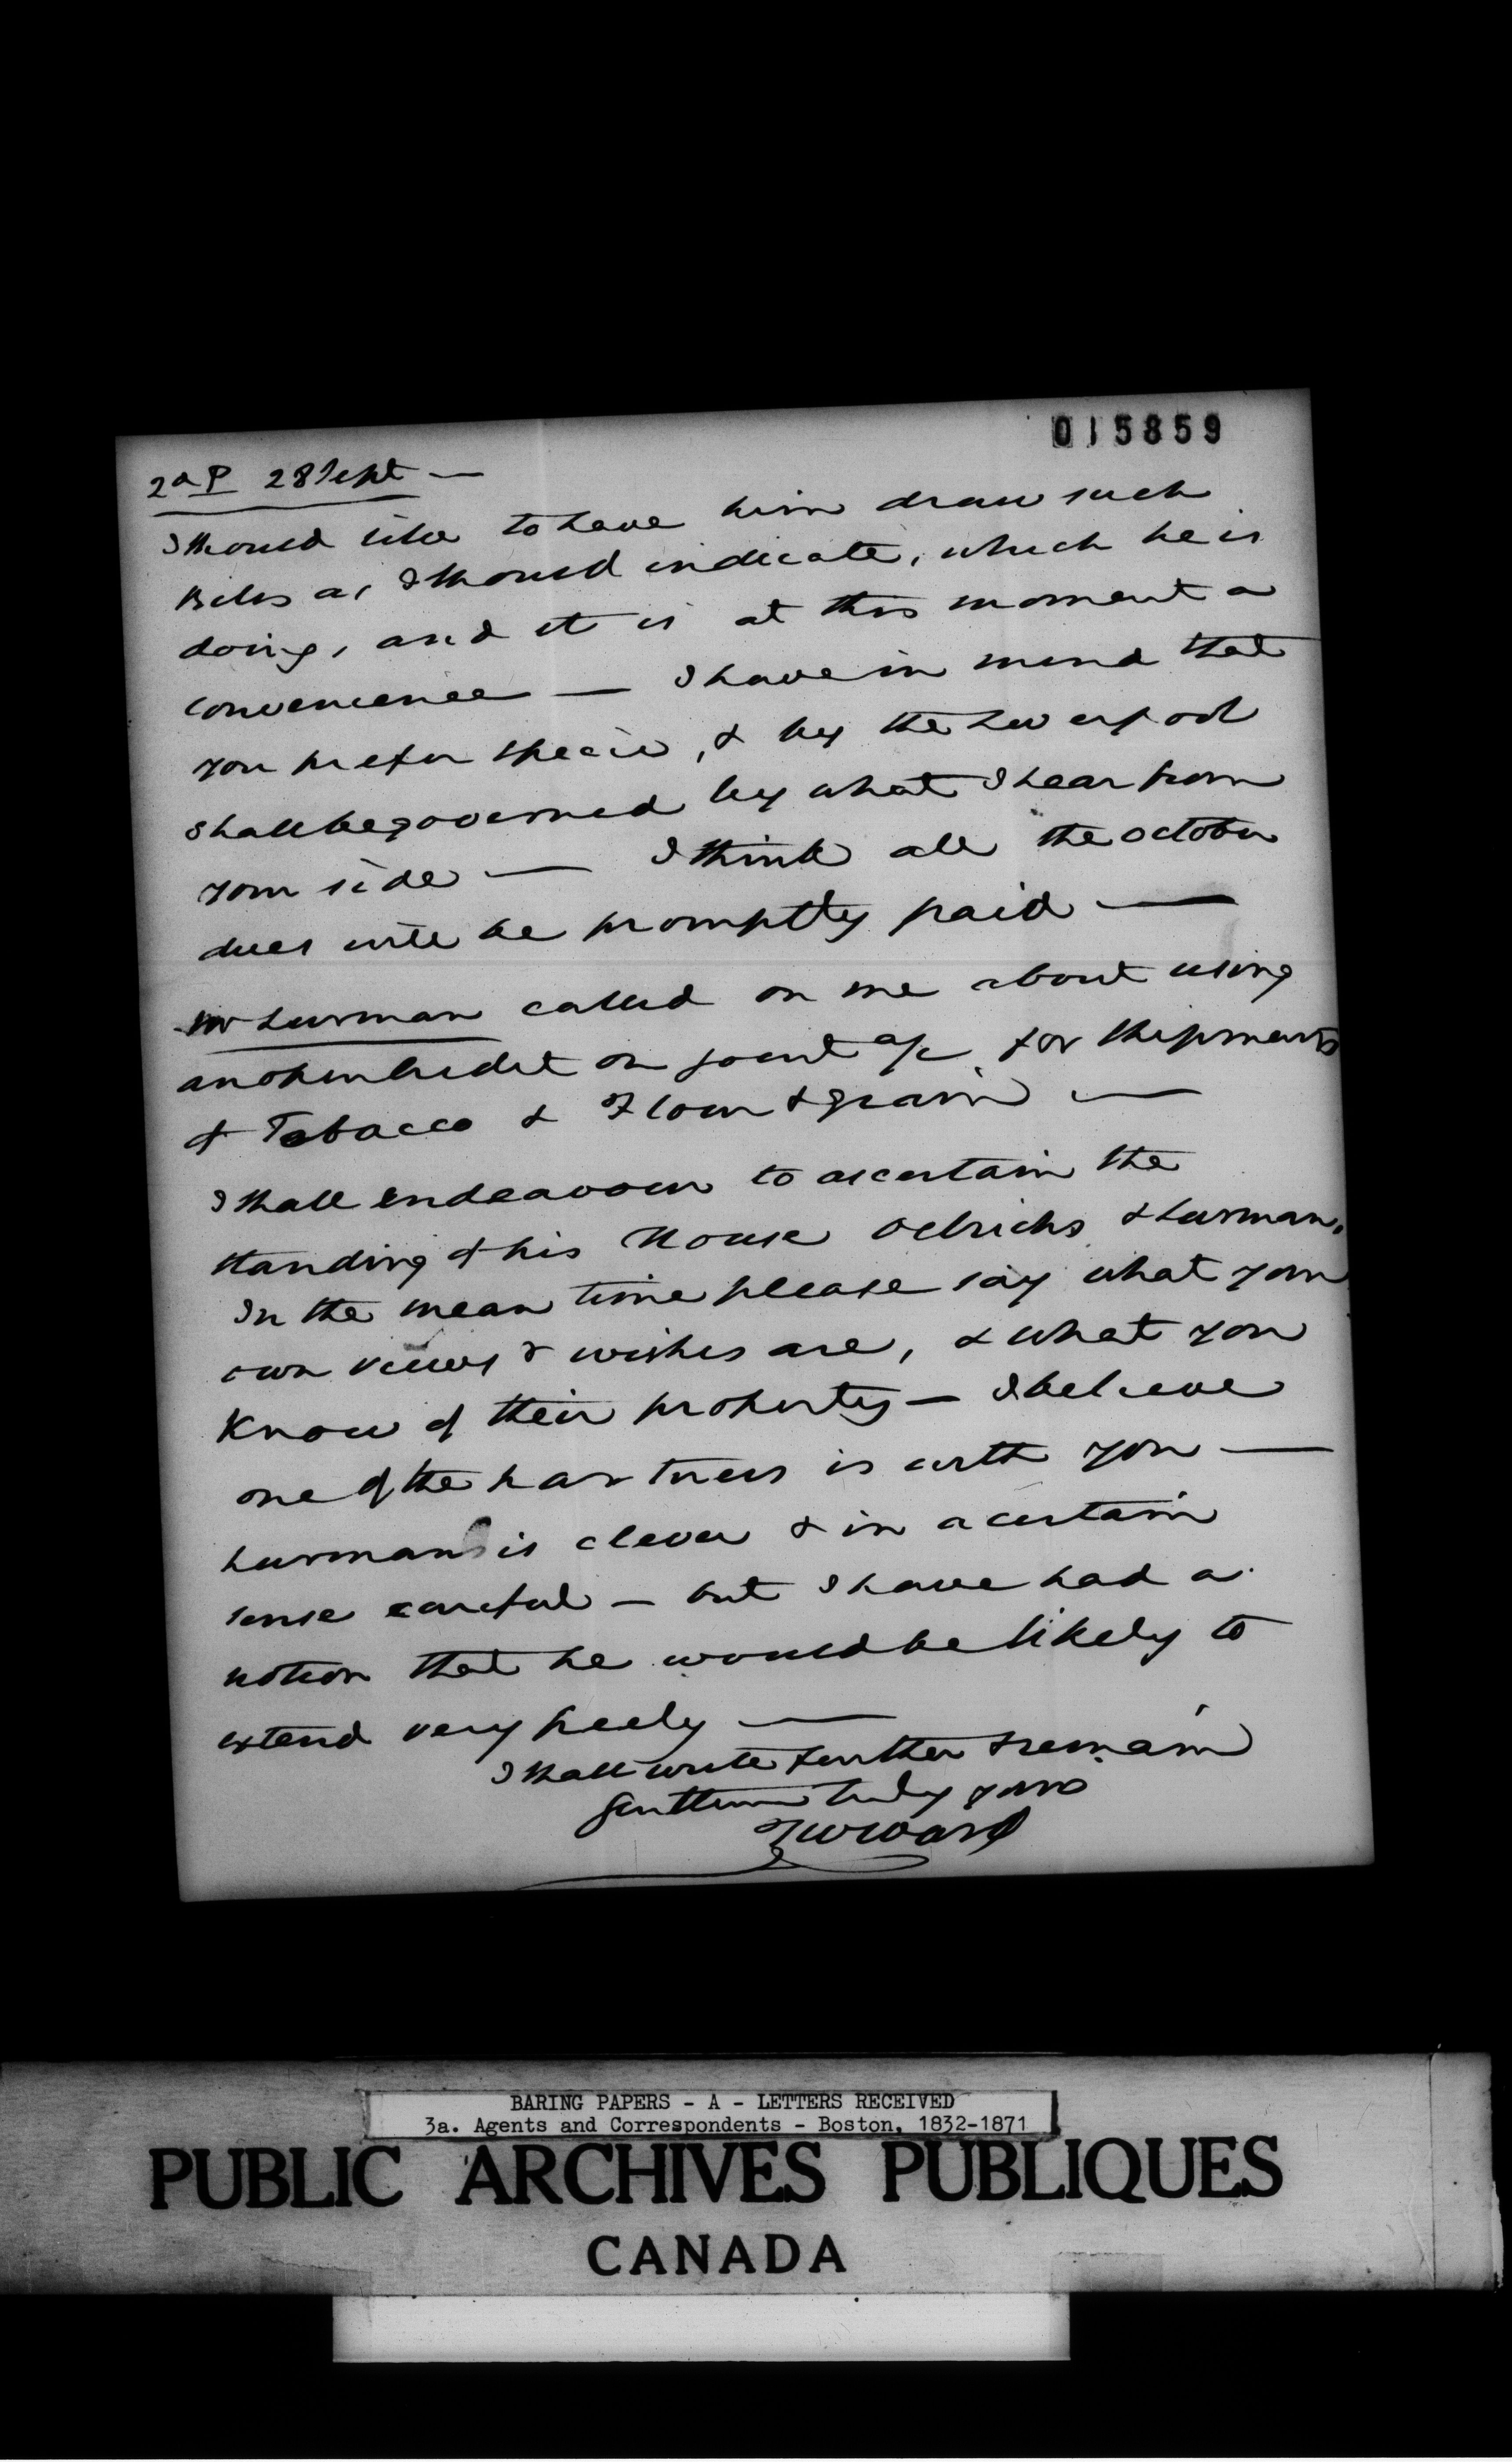 015859
2d P 28 Sept —
I should like to have him draw such
Bills as I should indicate, which he is
doing, and it is at this moment a
convenience — I have in mind that
you prefer specie, & by the Liverpool
shall be governed by what I hear from
your side — I think all the October
dues will be promptly paid —
Mr Lurman called on me about using
another Credit on joint a/c for shipments
of Tobacco & Flour & grain —
I shall endeavour to ascertain the
standing of his House Oelrichs & Lurman.
In the mean time please say what your
own views & wishes are, & what you
Know of their property — I believe
one of the partners is with you —
Lurman is clever & in a certain
sense careful — but I have had a
notion that he would be likely to
extend very freely —
I shall write further & remain
Gentlemen truly yours
TWWard
BARING PAPERS - A - LETTERS RECEIVED
3a. Agents and Correspondents - Boston, 1832-1871
PUBLIC ARCHIVES PUBLIQUES
CANADA